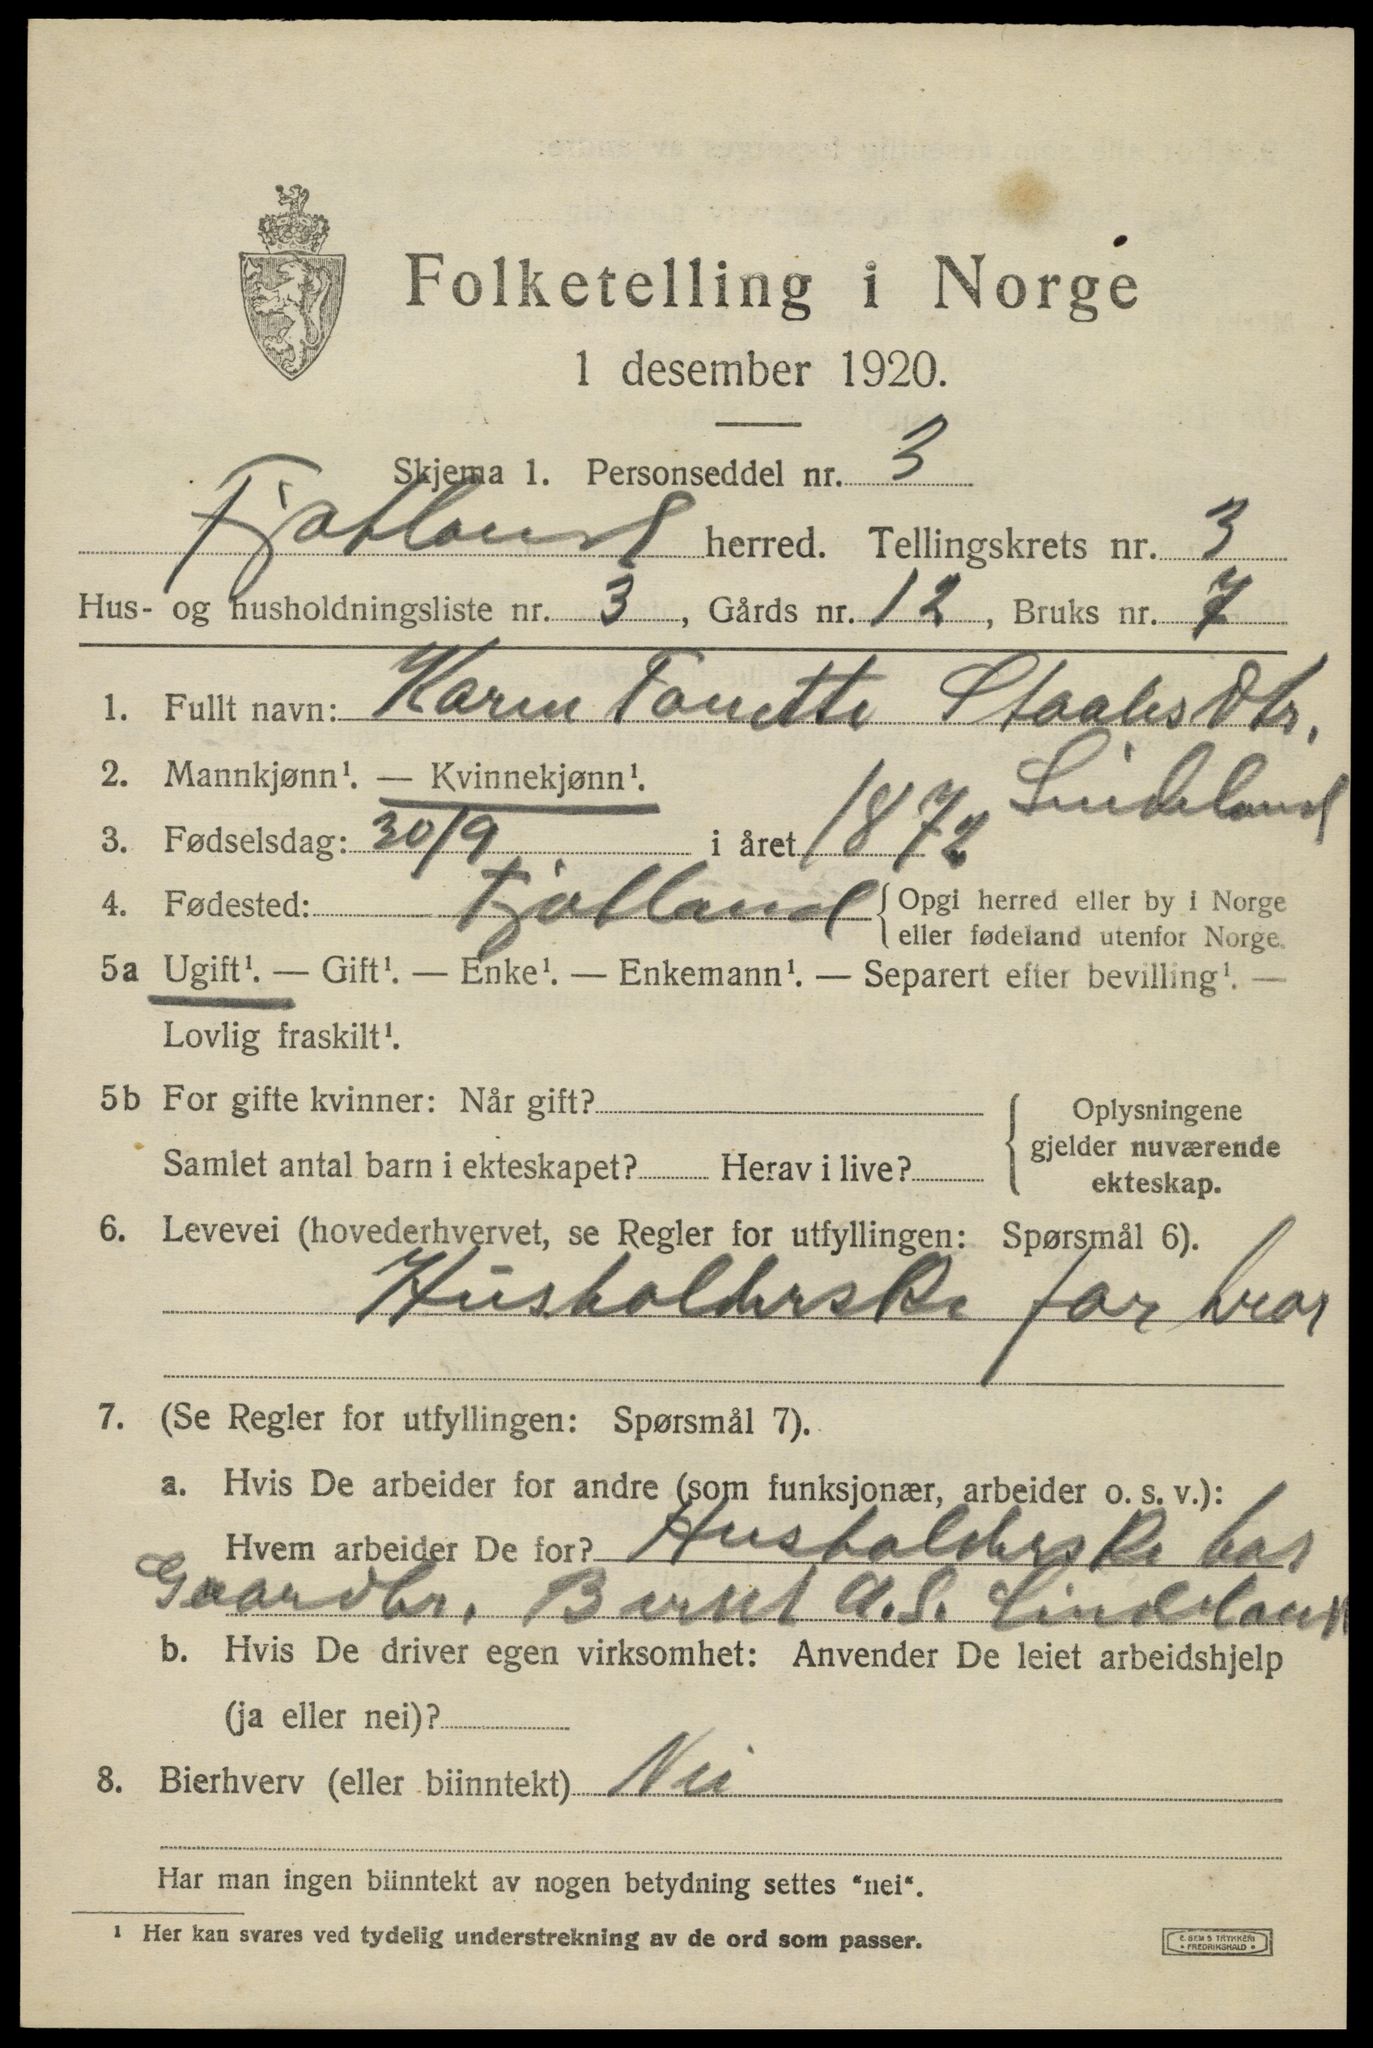 Folketelling i Norge
1 desember 1920.
Skjema 1. Personseddel nr. 3
Fjotland herred. Tellingskrets nr. 3
Hus- og husholdningsliste nr. 3, Gårds nr. 12, Bruks nr. 7
1. Fullt navn: Karen Tonette Staalesdtr.
Lindeland
2. Mannkjønn¹. — Kvinnekjønn¹.
3. Fødselsdag: 30/9 i året 1872
4. Fødested: Fjotland { Opgi herred eller by i Norge
eller fødeland utenfor Norge.
5a Ugift¹. — Gift¹. — Enke¹. — Enkemann¹. — Separert efter bevilling¹. —
Lovlig fraskilt¹.
5b For gifte kvinner: Når gift?
Samlet antal barn i ekteskapet? Herav i live?
{ Oplysningene
gjelder nuværende
ekteskap.
6. Levevei (hovederhvervet, se Regler for utfyllingen: Spørsmål 6).
Husholderske for bror
7. (Se Regler for utfyllingen: Spørsmål 7).
a. Hvis De arbeider for andre (som funksjonær, arbeider o. s. v.):
Hvem arbeider De for? Husholderske hos
Gaardbr. Bernt A.S. Lindeland
b. Hvis De driver egen virksomhet: Anvender De leiet arbeidshjelp
(ja eller nei)?
8. Bierhverv (eller biinntekt) Nei
Har man ingen biinntekt av nogen betydning settes "nei".
¹ Her kan svares ved tydelig understrekning av de ord som passer.
E. SEM'S TRYKKERI
• FREDRIKSHALD •